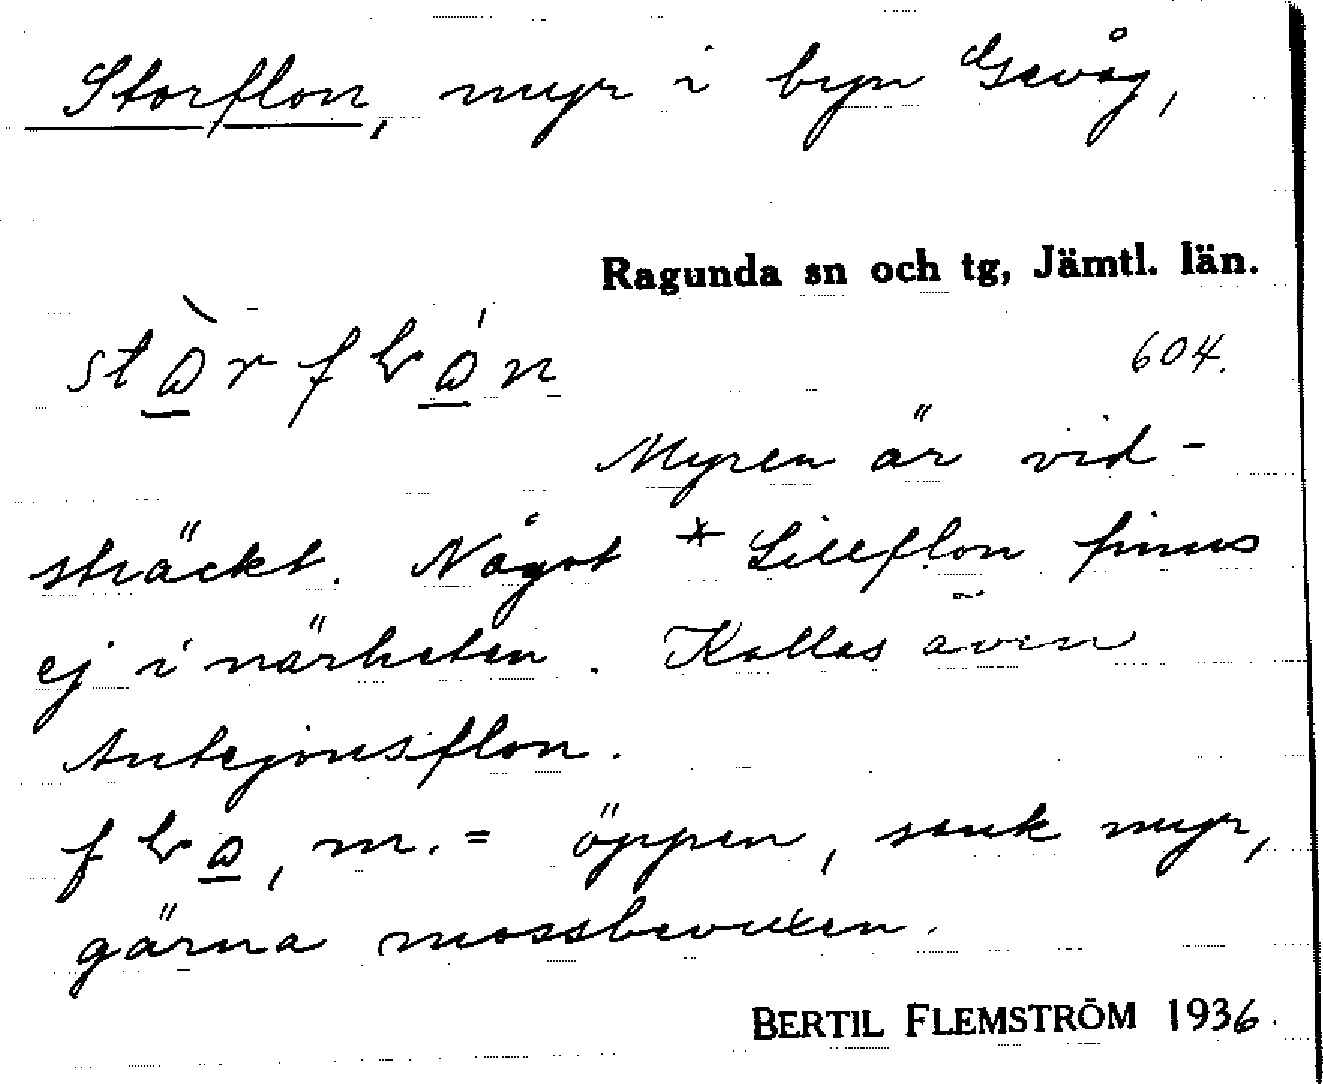 Storflon, myr i byn Gevåg,
Ragunda sn och tg, Jämtl. län.
604.
Myren är vid-
sträckt. Något * Lillflon finns
ej i närheten. Kallas även
Antejonsflon.
m. = öppen, sank myr,
gärna mossbevuxen.
BERTIL FLEMSTRÖM 1936.